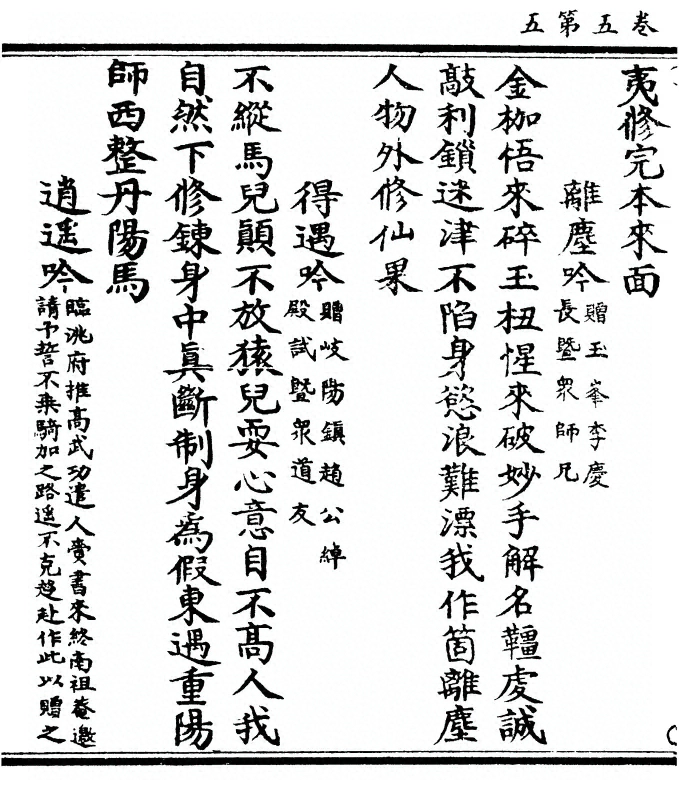 卷五第五
夷修完本來面
離塵吟
贈玉峯李慶
長暨衆師兄
金枷悟來碎玉杻惺來破妙手解名韁虔誠
敲利鎖迷津不陷身慾浪難漂我作箇離塵
人物外修仙果
得遇吟
贈岐陽鎮趙公綽
殿試暨衆道友
不縱馬兒顛不放猿兒耍心意自不高人我
自然下修鍊身中眞斷制身爲假東遇重陽
師西整丹陽馬
逍遥吟
臨洮府推高武功遣人賫書來終南祖菴邀
請予誓不乗騎加之路遥不克趍赴作此以贈之